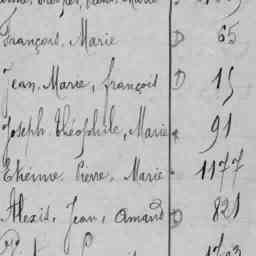 François, Marie D 65
Jean, Marie, françois D 15
Joseph, Théophile, Marie 91
Etienne, Pierre, Marie 1177
Alexis, Jean, Amand D 821